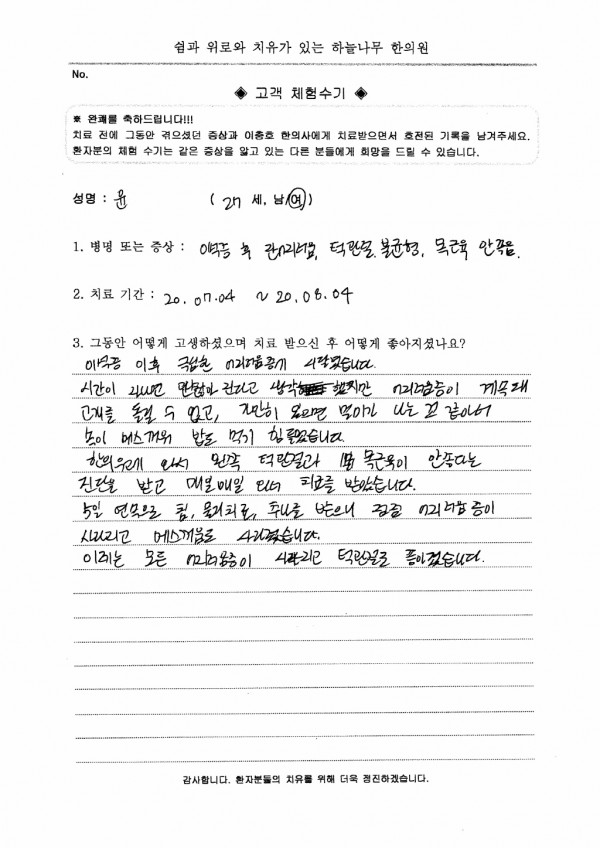 쉼과 위로와 치유가 있는 하늘나무 한의원
No.
◈ 고객 체험수기 ◈
※ 완쾌를 축하드립니다!!!
치료 전에 그동안 겪으셨던 증상과 이충호 한의사에게 치료받으면서 호전된 기록을 남겨주세요.
환자분의 체험 수기는 같은 증상을 앓고 있는 다른 분들에게 희망을 드릴 수 있습니다.
성명 : 윤 ( 27 세, 남/여)
1. 병명 또는 증상 : 이석증 후 잔어지러움, 턱관절 불균형, 목근육 안좋음.
2. 치료 기간 : 20.07.04 ~ 20.08.04
3. 그동안 어떻게 고생하셨으며 치료 받으신 후 어떻게 좋아지셨나요?
이석증 이후 극심한 어지러움증에 시달렸습니다.
시간이 지나면 괜찮아진다고 생각했지만 어지러움증이 계속돼
고개를 돌릴 수 없고, 가만히 있으면 멀미가 나는 것 같아서
속이 메스꺼워 밥도 먹기 힘들었습니다.
한의원에 와서 왼쪽 턱관절과 목근육이 안좋다는
진단을 받고 매일매일 와서 치료를 받았습니다.
5일 연속으로 침, 물리치료, 추나를 받으니 점점 어지러움증이
사라지고 메스꺼움도 사라졌습니다.
이제는 모든 어지러움증이 사라지고 턱관절도 좋아졌습니다.
감사합니다. 환자분들의 치유를 위해 더욱 정진하겠습니다.